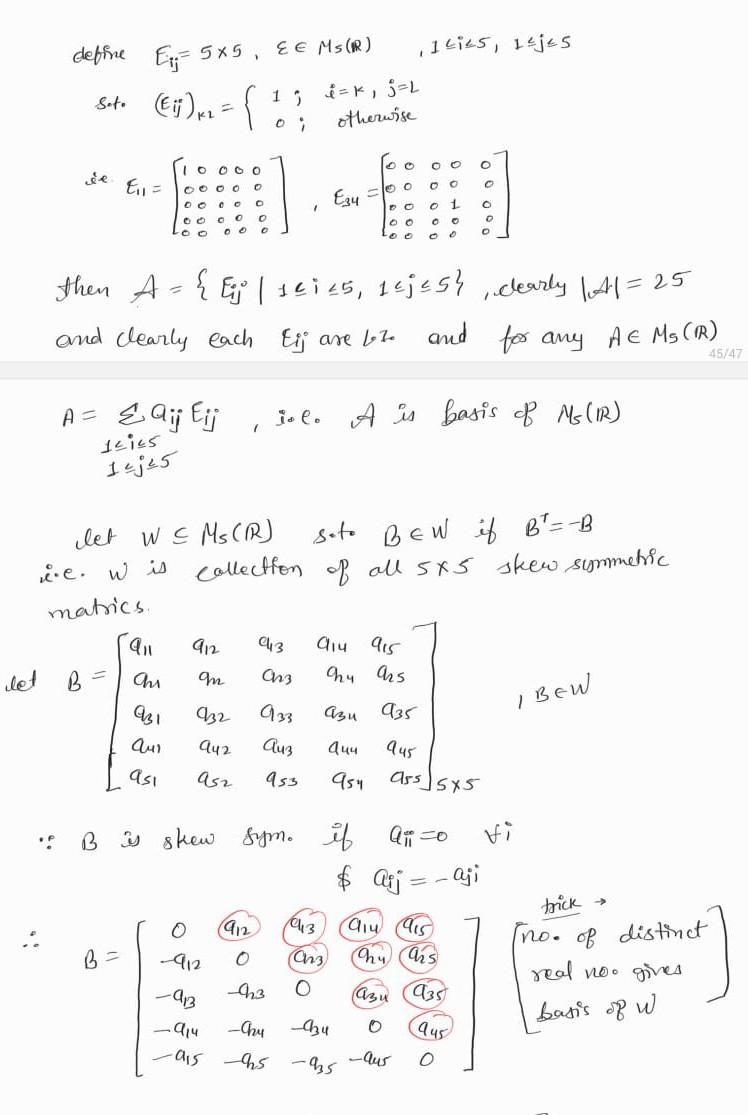 define Eij = 5×5, E ∈ M5(ℝ) , 1≤i≤5, 1≤j≤5
s.t. (Eij)KL = { 1 ; i=K, j=L
0 ; otherwise
i.e. E11 = [ 1 0 0 0 0
0 0 0 0 0
0 0 0 0 0
0 0 0 0 0
0 0 0 0 0 ] , E34 = [ 0 0 0 0 0
0 0 0 0 0
0 0 0 1 0
0 0 0 0 0
0 0 0 0 0 ]
then A = { Eij | 1≤i≤5, 1≤j≤5} , clearly |A| = 25
and clearly each Eij are L.I. and for any A ∈ M5(ℝ)
45/47
A = Σ aij Eij , i.e. A is basis of M5(ℝ)
1≤i≤5
1≤j≤5
let W ⊆ M5(ℝ) s.t. B ∈ W if B^T = -B
i.e. W is collection of all 5×5 skew symmetric
matrics.
let B = [ a11 a12 a13 a14 a15
a21 a22 a23 a24 a25
a31 a32 a33 a34 a35
a41 a42 a43 a44 a45
a51 a52 a53 a54 a55 ]5×5 , B∈W
∵ B is skew sym. if aii = 0 ∀i
$ aij = -aji
∴ B = [ 0 a12 a13 a14 a15
-a12 0 a23 a24 a25
-a13 -a23 0 a34 a35
-a14 -a24 -a34 0 a45
-a15 -a25 -a35 -a45 0 ]
trick →
[no. of distinct
real no. gives
basis of W]